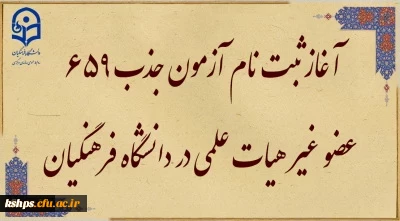 آغاز ثبت نام آزمون جذب ۶۵۹
عضو غیر هیات علمی در دانشگاه فرهنگیان
دانشگاه فرهنگیان
kshps.cfu.ac.ir